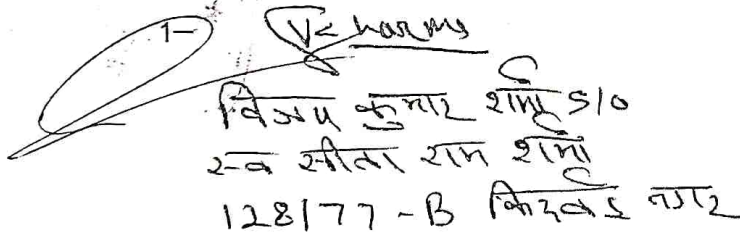 1- VK Sharma
विजय कुमार शर्मा S/o
स्व सीता राम शर्मा
128/77-B किदवई नगर